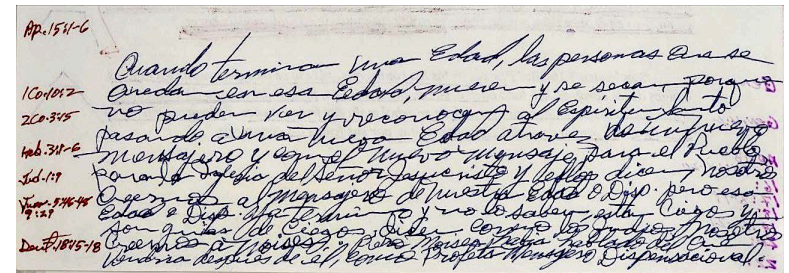 Ap. 15:1-6
1Co. 10:2
2Co. 3:15
Heb. 3:1-6
Jud. 1:9
Juan. 5:46-48
9:29
Deut. 18:15-18
Cuando termina una Edad, las personas que se
quedan en esa Edad, mueren y se secan, porque
no pueden ver y reconocer al Espíritu Santo
pasando a una nueva Edad a través de un nuevo
mensajero y con el nuevo mensaje para el Pueblo
para la Iglesia del Señor Jesucristo y ellos dicen, nosotros
creemos al mensajero de nuestra Edad o Disp. pero esa
Edad o Disp. ya terminó y no lo saben, están ciegos y
son guías de ciegos, dicen como los judíos nosotros
creemos a Moisés, Pero Moisés había hablado del que
vendría después de él, como Profeta Mensajero Dispensacional.